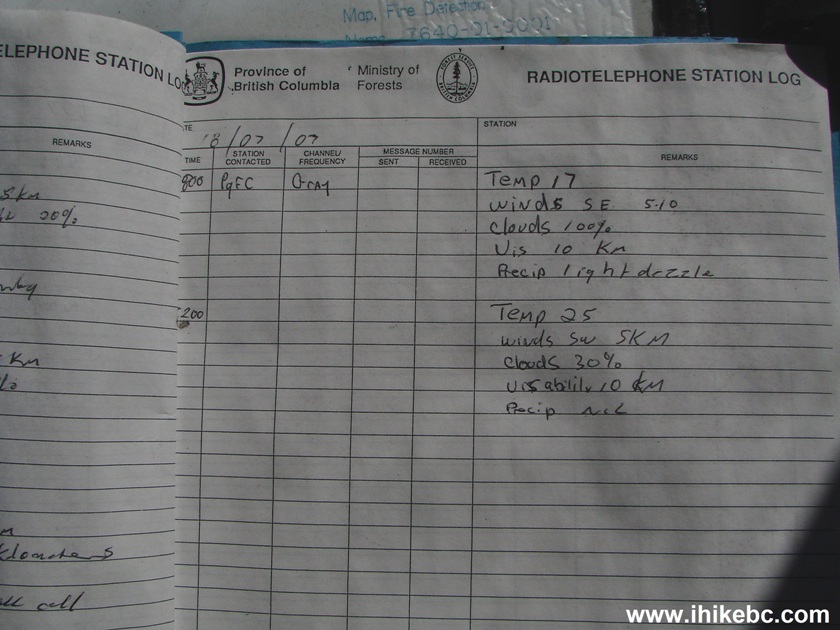 Map, Fire Detection
Name 7640-21-0001
ELEPHONE STATION LO
REMARKS
5km
20%
KM
call
Province of British Columbia
Ministry of Forests
FOREST SERVICE BRITISH COLUMBIA
RADIOTELEPHONE STATION LOG
TE 18/07/07
STATION
TIME
STATION CONTACTED
CHANNEL/ FREQUENCY
MESSAGE NUMBER
SENT
RECEIVED
REMARKS
800 PgFC Temp 17
Winds SE 5-10
Clouds 100%
Vis 10 Km
Precip light drizzle
200 Temp 25
winds SW 5KM
Clouds 30%
visability 10 KM
Precip Nil
www.ihikebc.com